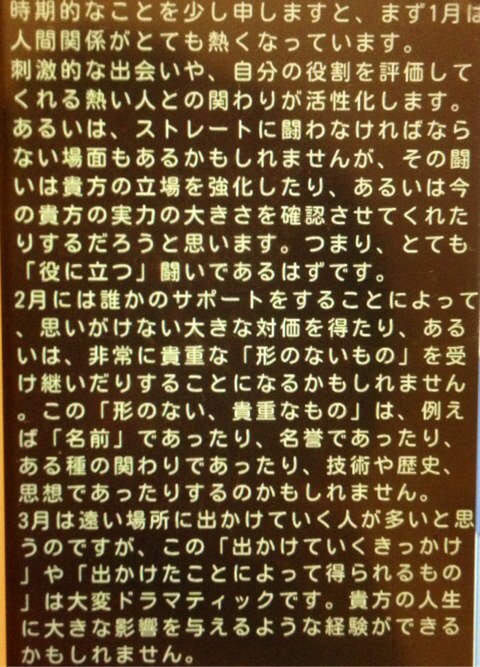 時期的なことを少し申しますと、まず1月は
人間関係がとても熱くなっています。
刺激的な出会いや、自分の役割を評価して
くれる熱い人との関わりが活性化します。
あるいは、ストレートに闘わなければなら
ない場面もあるかもしれませんが、その闘
いは貴方の立場を強化したり、あるいは今
の貴方の実力の大きさを確認させてくれた
りするだろうと思います。つまり、とても
「役に立つ」闘いであるはずです。
2月には誰かのサポートをすることによって
、思いがけない大きな対価を得たり、ある
いは、非常に貴重な「形のないもの」を受
け継いだりすることになるかもしれません
。この「形のない、貴重なもの」は、例え
ば「名前」であったり、名誉であったり、
ある種の関わりであったり、技術や歴史、
思想であったりするのかもしれません。
3月は遠い場所に出かけていく人が多いと思
うのですが、この「出かけていくきっかけ
」や「出かけたことによって得られるもの
」は大変ドラマティックです。貴方の人生
に大きな影響を与えるような経験ができる
かもしれません。